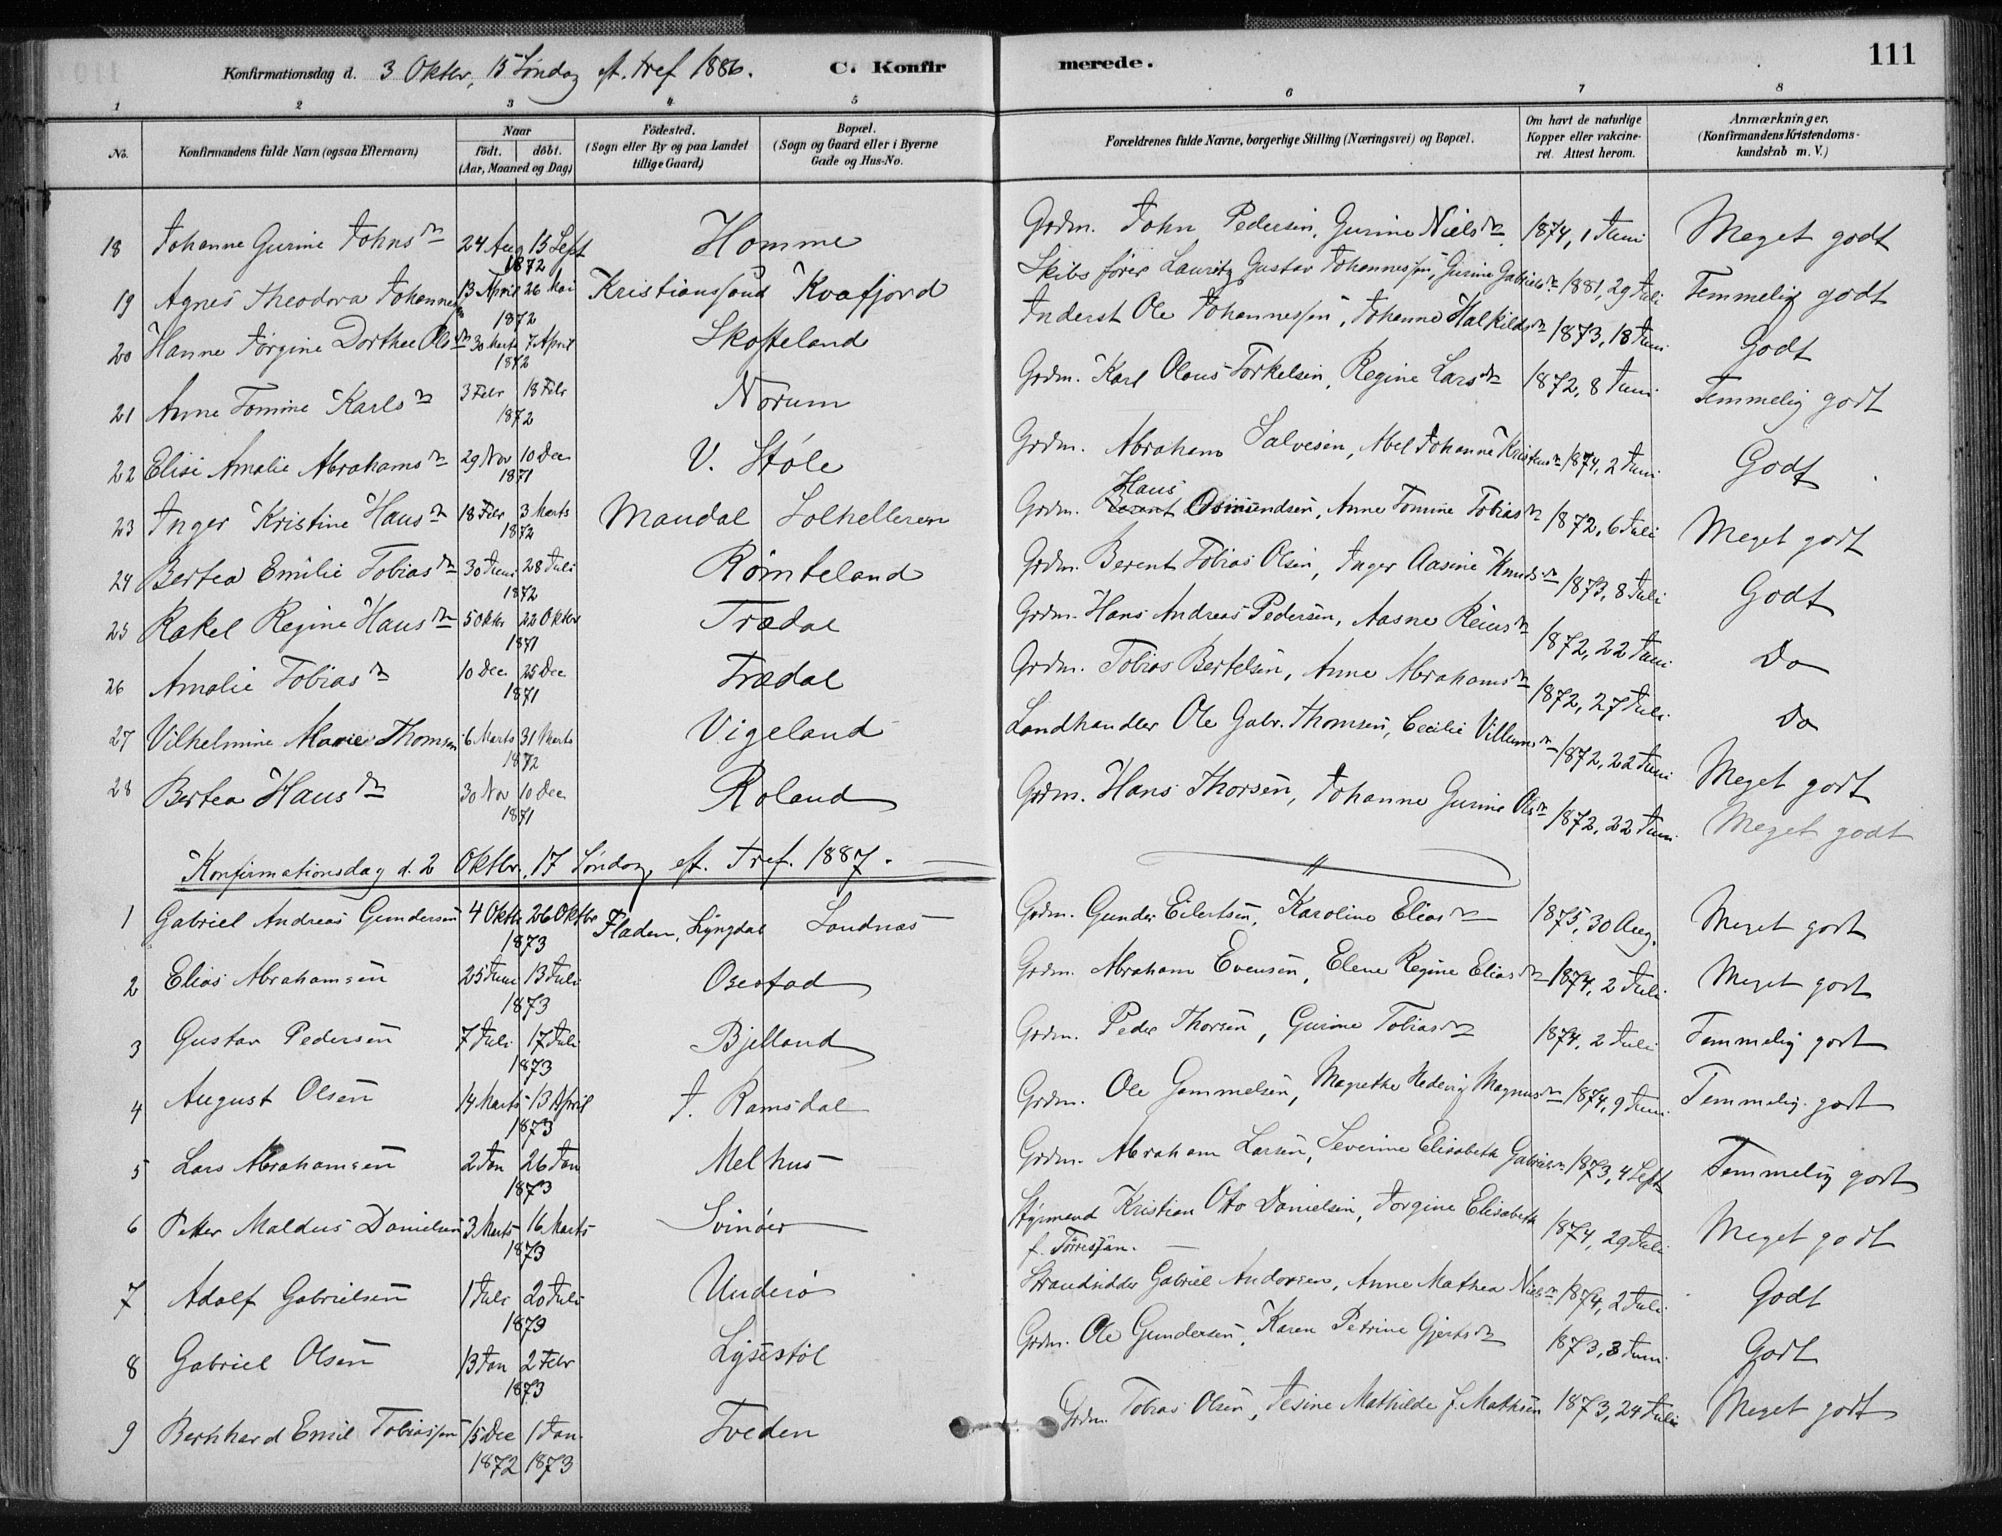 Konfirmationsdag d. 3 Oktbr, 15 Søndag eft. Tref 1886. C. Konfirmerede. 111
1 2 3 4 5 6 7 8
No. Konfirmandens fulde Navn (ogsaa Efternavn) Naar født. døbt. (Aar, Maaned og Dag) Fødested. (Sogn eller By og paa Landet tillige Gaard) Bopæl. (Sogn og Gaard eller i Byerne Gade og Hus-No. Forældrenes fulde Navne, borgerlige Stilling (Næringsvei) og Bopæl. Om havt de naturlige Kopper eller vakcineret. Attest herom. Anmærkninger. (Konfirmandens Kristendomskundskab m. V.)
18 Johanne Gurine Johnsdn 24 Aug 15 Sept 1872 Homme Grdm. John Pedersen, Gurine Nielsdn 1874, 1 Juni Meget godt
19 Agnes Theodora Johannessen 13 April 26 Mai 1872 Kristianssund Kvafjord Skibsfører Lauritz Gustav Johannessen, Gurine Gabrielsdn 1881, 29 Juli Temmelig godt
20 Hanne Jørgine Dorthee Olsdn 30 Marts 7 April 1872 Skofteland Inderst Ole Johannessen, Johanne Halkildsdn 1873, 18 Juni Godt
21 Anne Tomine Karlsdn 3 Febr 18 Febr 1872 Norum Grdm. Karl Olaus Torkelsen, Regine Larsdn 1872, 8 Juni Temmelig godt
22 Elise Amalie Abrahamsdn 29 Nov 10 Dec 1871 V. Støle Grdm. Abraham Salvesen, Abel Johanne Kristensdn 1874, 2 Juni Godt
23 Inger Kristine Hansdn 18 Febr 3 Marts 1872 Mandal Solhelleren Grdm. Hans Osmundsen, Anne Tomine Tobiasdn 1872, 6 Juli Meget godt
24 Bertea Emilie Tobiasdn 30 Juni 28 Juli 1872 Rømteland Grdm. Berent Tobias Olsen, Inger Aasine Knudsdn 1873, 8 Juli Godt
25 Rakel Regine Hansdn 5 Oktbr 22 Oktbr 1871 Trædal Grdm. Hans Andreas Pedersen, Aasne Reiersdn 1872, 22 Juni Do
26 Amalie Tobiasdn 10 Dec 25 Dec 1871 Trædal Grdm. Tobias Bertelsen, Anne Abrahamsdn 1872, 27 Juli Do
27 Vilhelmine Marie Thomsen 6 Marts 31 Marts 1872 Vigeland Landhandler Ole Gabr. Thomsen, Cecilie Villumsdn 1872, 22 Juni Meget godt
28 Bertea Hansdn 30 Nov 10 Dec 1871 Roland Grdm. Hans Thorsen, Johanne Gurine Olsdn 1872, 22 Juni Meget godt
Konfirmationsdag d. 2 Oktbr. 17 Søndag eft. Tref. 1887.
1 Gabriel Andreas Gundersen 4 Oktbr 26 Oktbr 1873 Fladen, Lyngdal Sandnæs Grdm. Gunder Eilertsen, Karoline Eliasdn 1875, 30 Aug. Meget godt
2 Elias Abrahamsen 25 Juni 13 Juli 1873 Osestad Grdm. Abraham Evensen, Elene Regine Eliasdn 1874, 2 Juli Meget godt
3 Gustav Pedersen 7 Juli 17 Juli 1873 Bjelland Grdm. Peder Thorsen, Gurine Tobiasdn 1874, 2 Juli Temmelig godt
4 August Olsen 14 Marts 13 April 1873 I. Ramsdal Grdm. Ole Gammelsen, Magrethe Hedevig Magnusdn 1874, 9 Juni Temmelig godt
5 Lars Abrahamsen 2 Jan 26 Jan 1873 Melhus Grdm. Abraham Larsen, Severine Elisabeth Gabrielsdn 1873, 4 Sept Temmelig godt
6 Petter Maldus Danielsen 3 Marts 16 Marts 1873 Svinøer Styrmand Kristian Otto Danielsen, Jørgine Elisabeth f. Tørressen. 1874, 29 Juli Meget godt
7 Adolf Gabrielsen 1 Juli 20 Juli 1873 Underø Strandsidder Gabriel Andersen, Anne Mathea Nielsdn 1874, 2 Juli Godt
8 Gabriel Olsen 13 Jan 2 Febr 1873 Lysestøl Grdm. Ole Gundersen, Karen Petrine Gjertsdn 1873, 3 Juni Godt
9 Bernhard Emil Tobiassen 15 Dec 1872 1 Jan. 1873 Tveden Grdm. Tobias Olsen, Jesine Mathilde f. Mathsen 1873, 24 Juli Meget godt